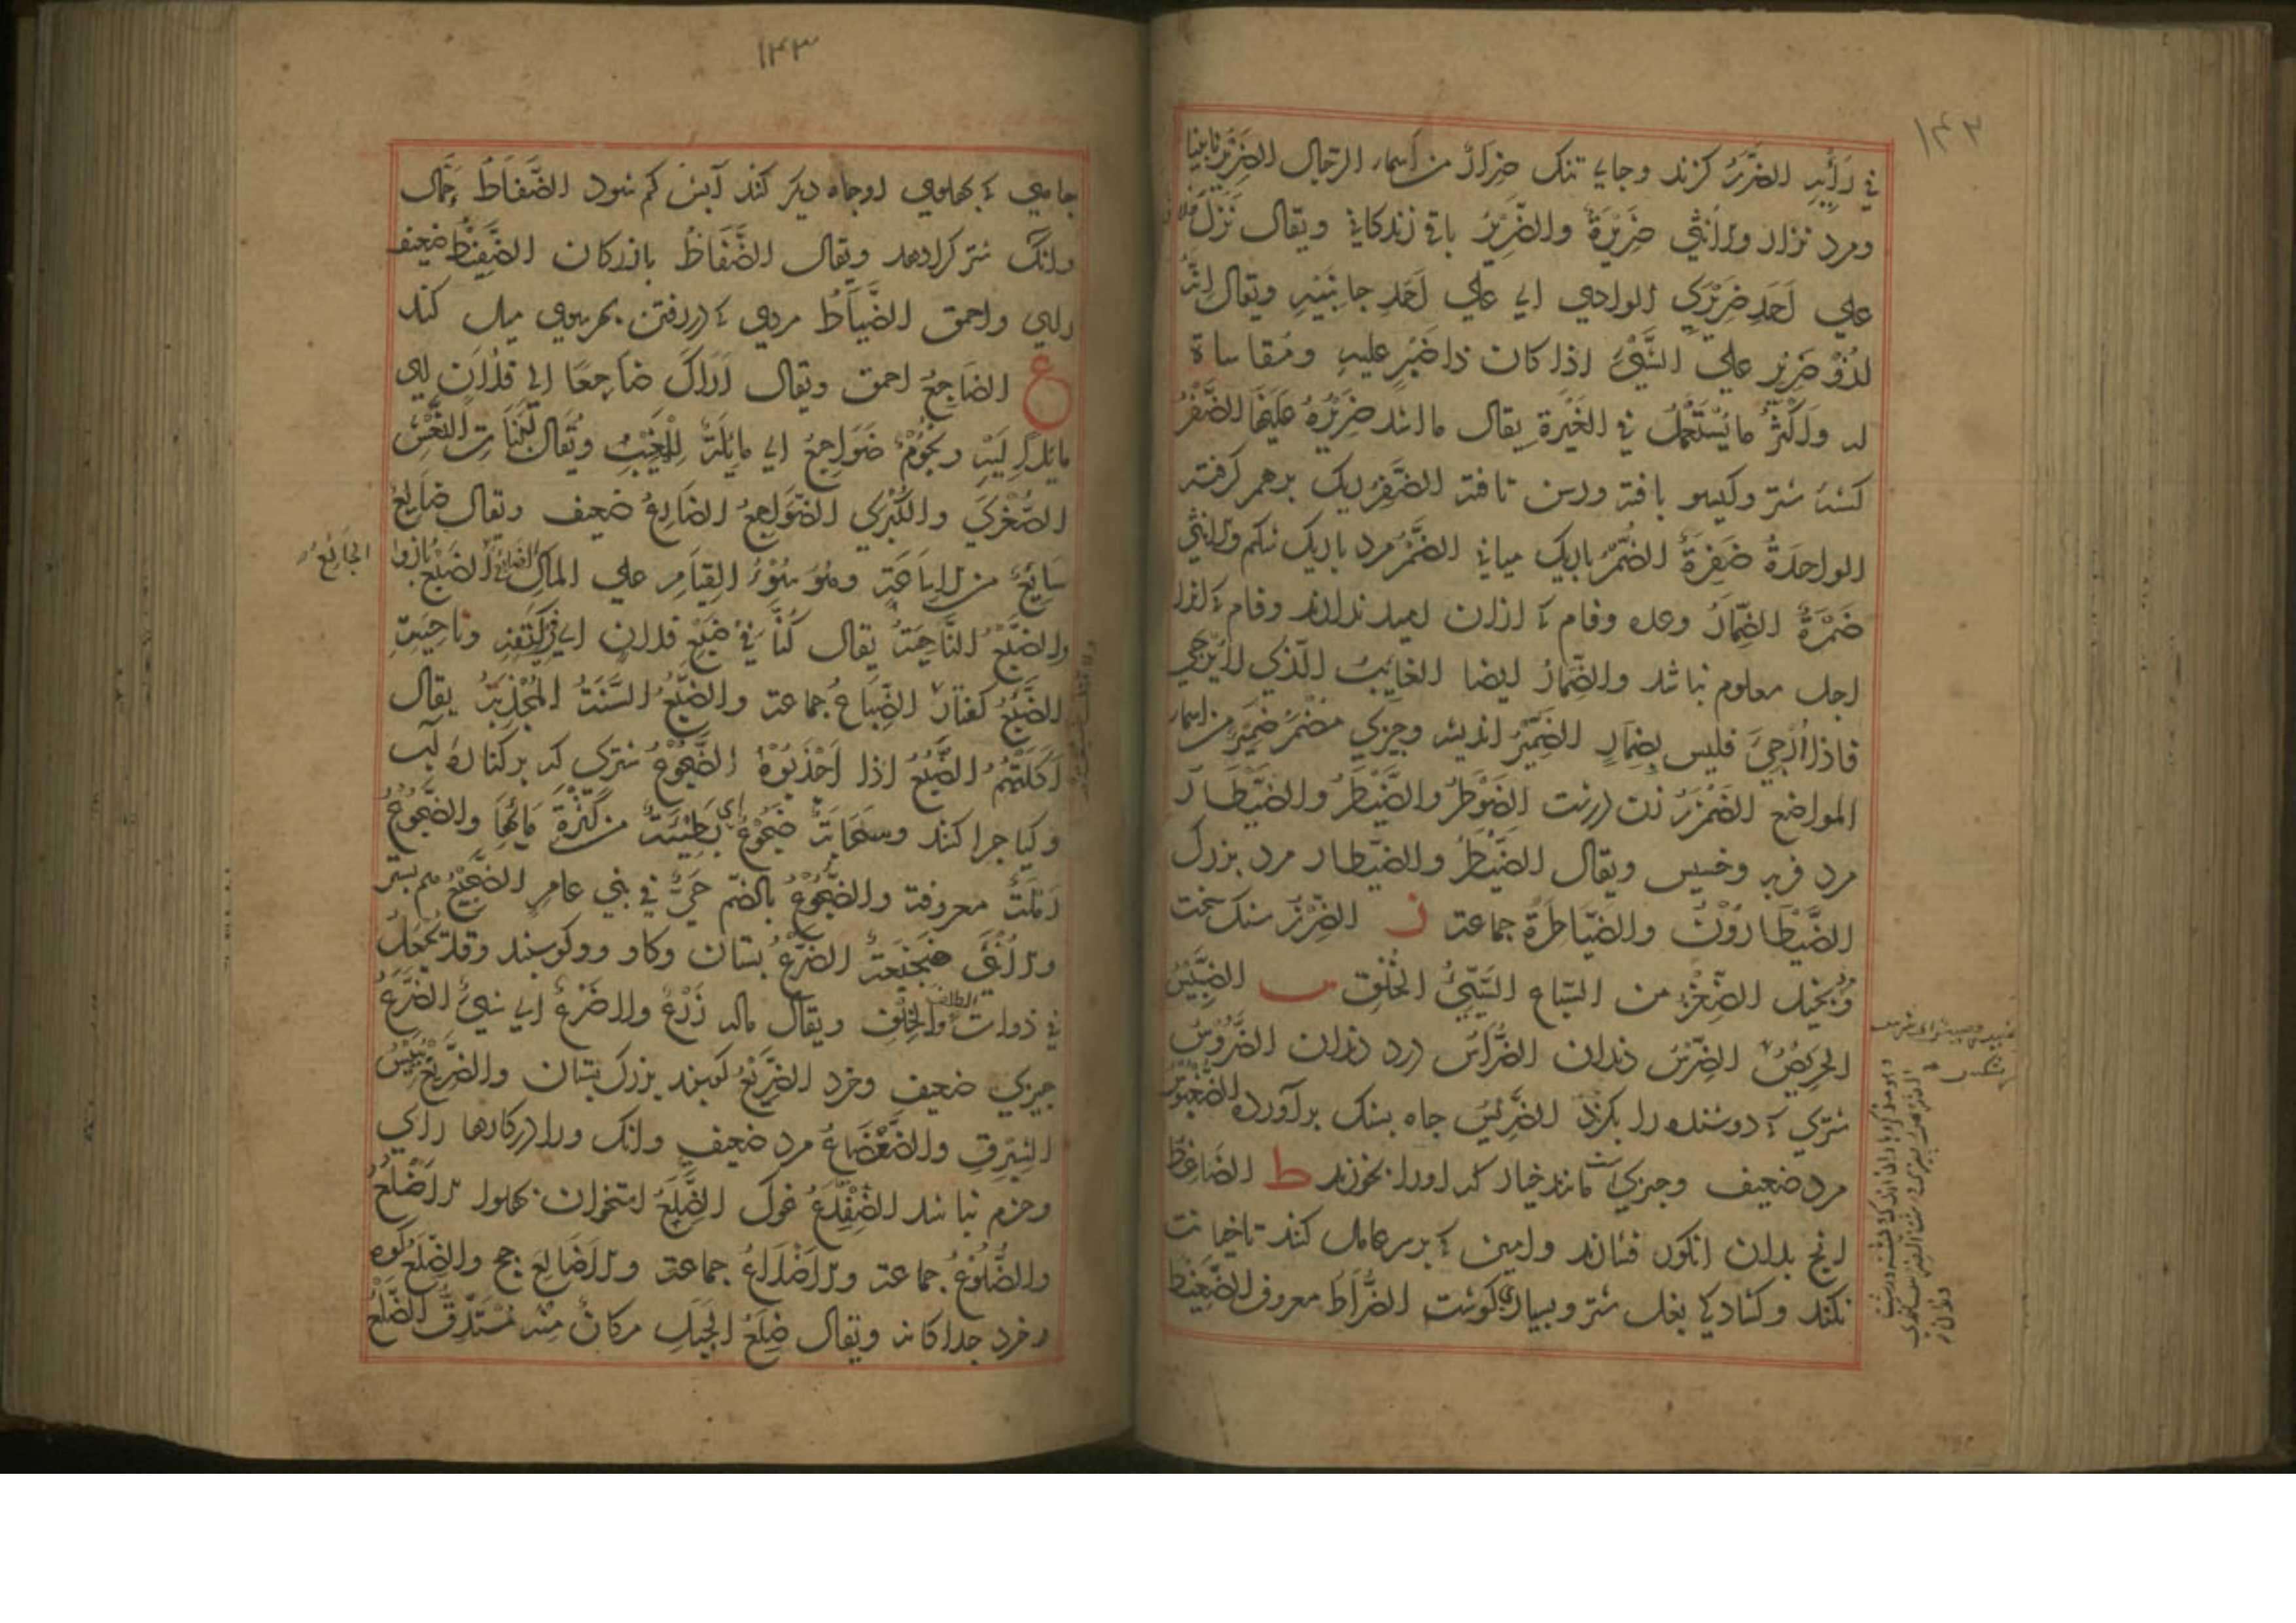 ۱۴۲
في رَأْيِهِ الضَّرَرُ كزند وجاى تنك ضِرَارٌ من اسماء الرجال الضَرِيْرُ نابينا
ومرد نزار والانثي ضَرِيْرَةٌ والضَّرِيْرُ باقي زندكاني ويقال نَزَلَ فلان
علي اَحَدِ ضَرِيْرَي الوادي اي علي اَحَدِ جانِبَيْهِ ويقال اِنَّهُ
لذُوْ ضَرِيْرٍ علي الشَّيْئِ اذا كان ذا صَبْرٍ عليه ومُقاساة
له واَكْثَرُ ما يُسْتَعْمَلُ في الغَيْرَةِ يقال ما اشد ضَرِيْرَهُ عَلَيْهَا الضَّفْرُ
شتر وكيسو بافته ورسن تافته الضَّفِرُ ريك برهم كرفته
الواحدةُ ضَفِرَةٌ الضُّمْرُ باريك مياني الضَّمْرُ مرد باريك شكم والانثي
ضَمْرَةٌ الضِّمَارُ وعده وفام كه ازان اميد ندارند وفام كه انرا
اجل معلوم نباشد والضِّمَارُ ايضا الغايب الّذي لا يُرْجي
فاذا اُرْجِيَ فليس بِضِمَارٍ الضَّمِيْرُ انديشه وچيزي مُضْمَر ضُمَيْر من اسماء
المواضع الضَّمْزَرُ زن درشت الضَوْطَرُ والضَّيْطَرُ والضَيْطَار
مرد فربه وخسيس ويقال الضَّيْطَرُ والضَّيْطار مرد بزرك
الضَّيْطَارُوْنَ والضَّيَاطِرَةُ جماعة ز الضِرْزُ سنك سخت
ومرد بخيل الضِّغْزُ من السّباع السَّيِّئُ الخُلُقِ س الضَّبِيْسُ
الحَرِيْصُ الضِّرْسُ دندان الضَّرَاسُ درد دندان الضَّرُوْسُ
شتري كه دوشنده را بكزد الضَّرِيْسُ چاه بسنك برآورده الضُّغْبُوْسُ
مرد ضعيف وچيزي است مانند خيار كه اورا بخورند ط الضاغِطُ
رنج بدان انكور فشارند وامين كه بر سر عامل كند تا خيانت
نكند وكشادكي بغل شتر وبسياري كوشت الضُّرَاطُ معروف الضَّغِيْطُ
۱۴۳
چاهي كه بهلوي او چاه ديكر كند آبش كم شود الضَّفَّاطُ جَمَّال
وانك شتر كرا دهد ويقال الضَّفَّاطُ بازركان الضَّفِيْطُ ضعيف
راي واحمق الضَّيَّاطُ مردي كه در رفتن بهر سوي ميل كند
ع الضَاجِعُ احمق ويقال اَرَاكَ ضاجِعًا الي فلانٍ اي
مايلا اِلَيْهِ ونجُوْمٌ ضَوَاجِعُ اي مايلة لِلْمَغِيْبِ ويقال لِبَنَاتِ النَّعْشِ
الصُّغْرَى والكُبْرَى الضَّوَاجِعُ الضَارِعُ ضعيف ويقال ضَايِعٌ
سَايِعٌ من الاِسَاعَةِ وهو سُوْءُ القِيَامِ علي المال الضَّبْعُ بازو
والضَّبْعُ النَّاحِيَةُ يقال كُنَّا فِيْ ضَبْعِ فلان اي في كَنَفِهِ وناحِيَتِهِ
الضَّبُعُ كفتار الضِّبَاعُ جماعة والضَّبُعُ السَّنَةُ المُجْدِبَةُ يقال
اَكَلَتْهُمُ الضَّبُعُ اذا اَجْدَبُوْا الضَّجُوْعُ شتري كه بر كناره آب
وكيا چرا كند وسَحَابَةٌ ضَجُوْعٌ اي بَطِيْئَةٌ من كَثْرَةِ مَائِهَا والضَّجُوْعُ
رَمْلَةٌ معروفة والضُّجُوْعُ بالضم حَيٌّ في بني عامر الضَّجِيْعُ هم بستر
والاُنثي ضَجِيْعَةٌ الضَّرْعُ پستان وكاو وكوسبند وقد يُجْعَلُ
في ذوات الظلف والخُفِّ ويقال ماله زَرْعٌ ولا ضَرْعٌ اي شيئ الضَّرَعُ
چيزي ضعيف وخرد الضَّرِيْعُ كوسبند بزرك پستان والضَّرِيْعُ يَبِيْسُ
الشِّبْرِقِ والضَّعْضَاعُ مرد ضعيف وانك ورا در كارها راي
وحزم نباشد الضِّفْدِعُ غوك الضِّلَعُ استخوان پهلو الاَضْلُعُ
والضُّلُوْعُ جماعة والاَضْلاعُ جماعة والاَضَالِعُ جج والضِّلَعُ كوه
خرد جداكانه ويقال ضِلَعُ الجَبَلِ مكانٌ منه مُسْتَدِقٌّ الضَّلَعُ